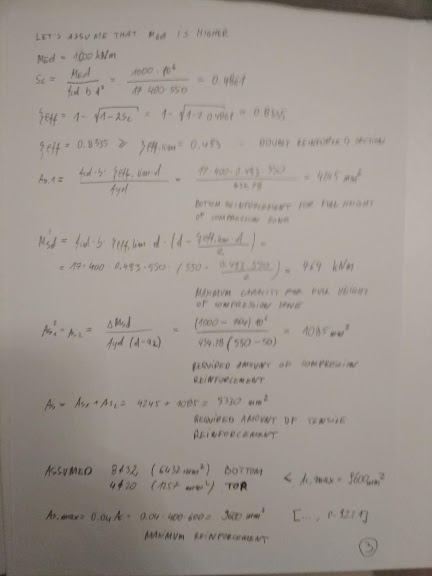 LET'S ASSUME THAT MEd IS HIGHER
MEd = 1000 kNm
Sc = MEd / fcd·b·d² = 1000·10⁶ / 17·400·550² = 0.4861
ξeff = 1 - √1-2Sc = 1 - √1-2·0.4861 = 0.8335
ξeff = 0.8335 ≥ ξeff,lim = 0.493 = DOUBLY REINFORCED SECTION
As,1 = fcd·b·ξeff,lim·d / fyd = 17·400·0.493·550 / 434.78 = 4245 mm²
BOTTOM REINFORCEMENT FOR FULL HEIGHT
OF COMPRESSION ZONE
M'Sd = fcd·b·ξeff,lim·d·(d - ξeff,lim·d / 2) =
= 17·400·0.493·550·(550 - 0.493·550 / 2) = 764 kNm
MAXIMUM CAPACITY FOR FULL HEIGHT
OF COMPRESSION ZONE
As₁² = As₂ = ΔMSd / fyd(d-a₂) = (1000-764)·10⁶ / 434.78(550-50) = 1085 mm²
REQUIRED AMOUNT OF COMPRESSION
REINFORCEMENT
As = As₁ + As₂ = 4245 + 1085 = 5330 mm²
REQUIRED AMOUNT OF TENSILE
REINFORCEMENT
ASSUMED 8φ32 (6432 mm²) BOTTOM
4φ20 (1257 mm²) TOP < As,max = 9600 mm²
As,max = 0.04 Ac = 0.04·400·600 = 9600 mm² [..., 9.2.1.1]
MAXIMUM REINFORCEMENT
3